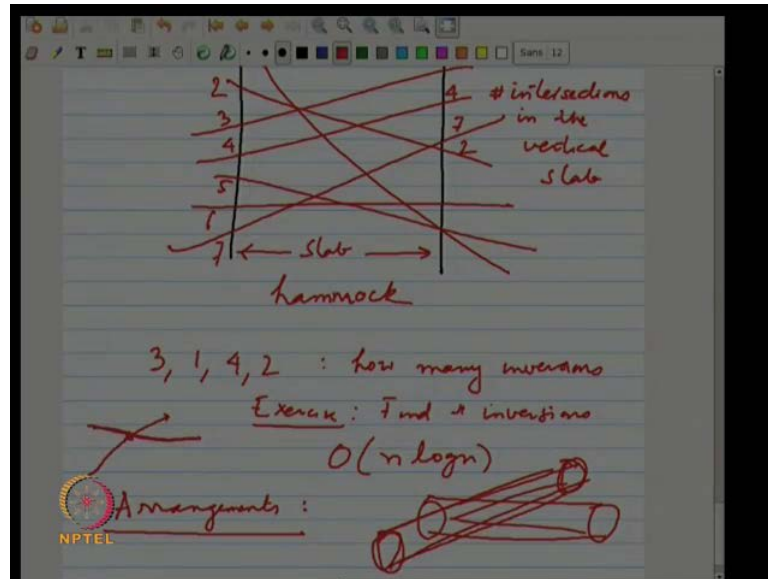 Sans 12
2 4 # intersections
3 7 in the
4 2 vertical
5 slab
6
7 ← Slab →
hammock
3, 1, 4, 2 : how many inversions
Exercise : Find # inversions
O(n log n)
Arrangements :
NPTEL